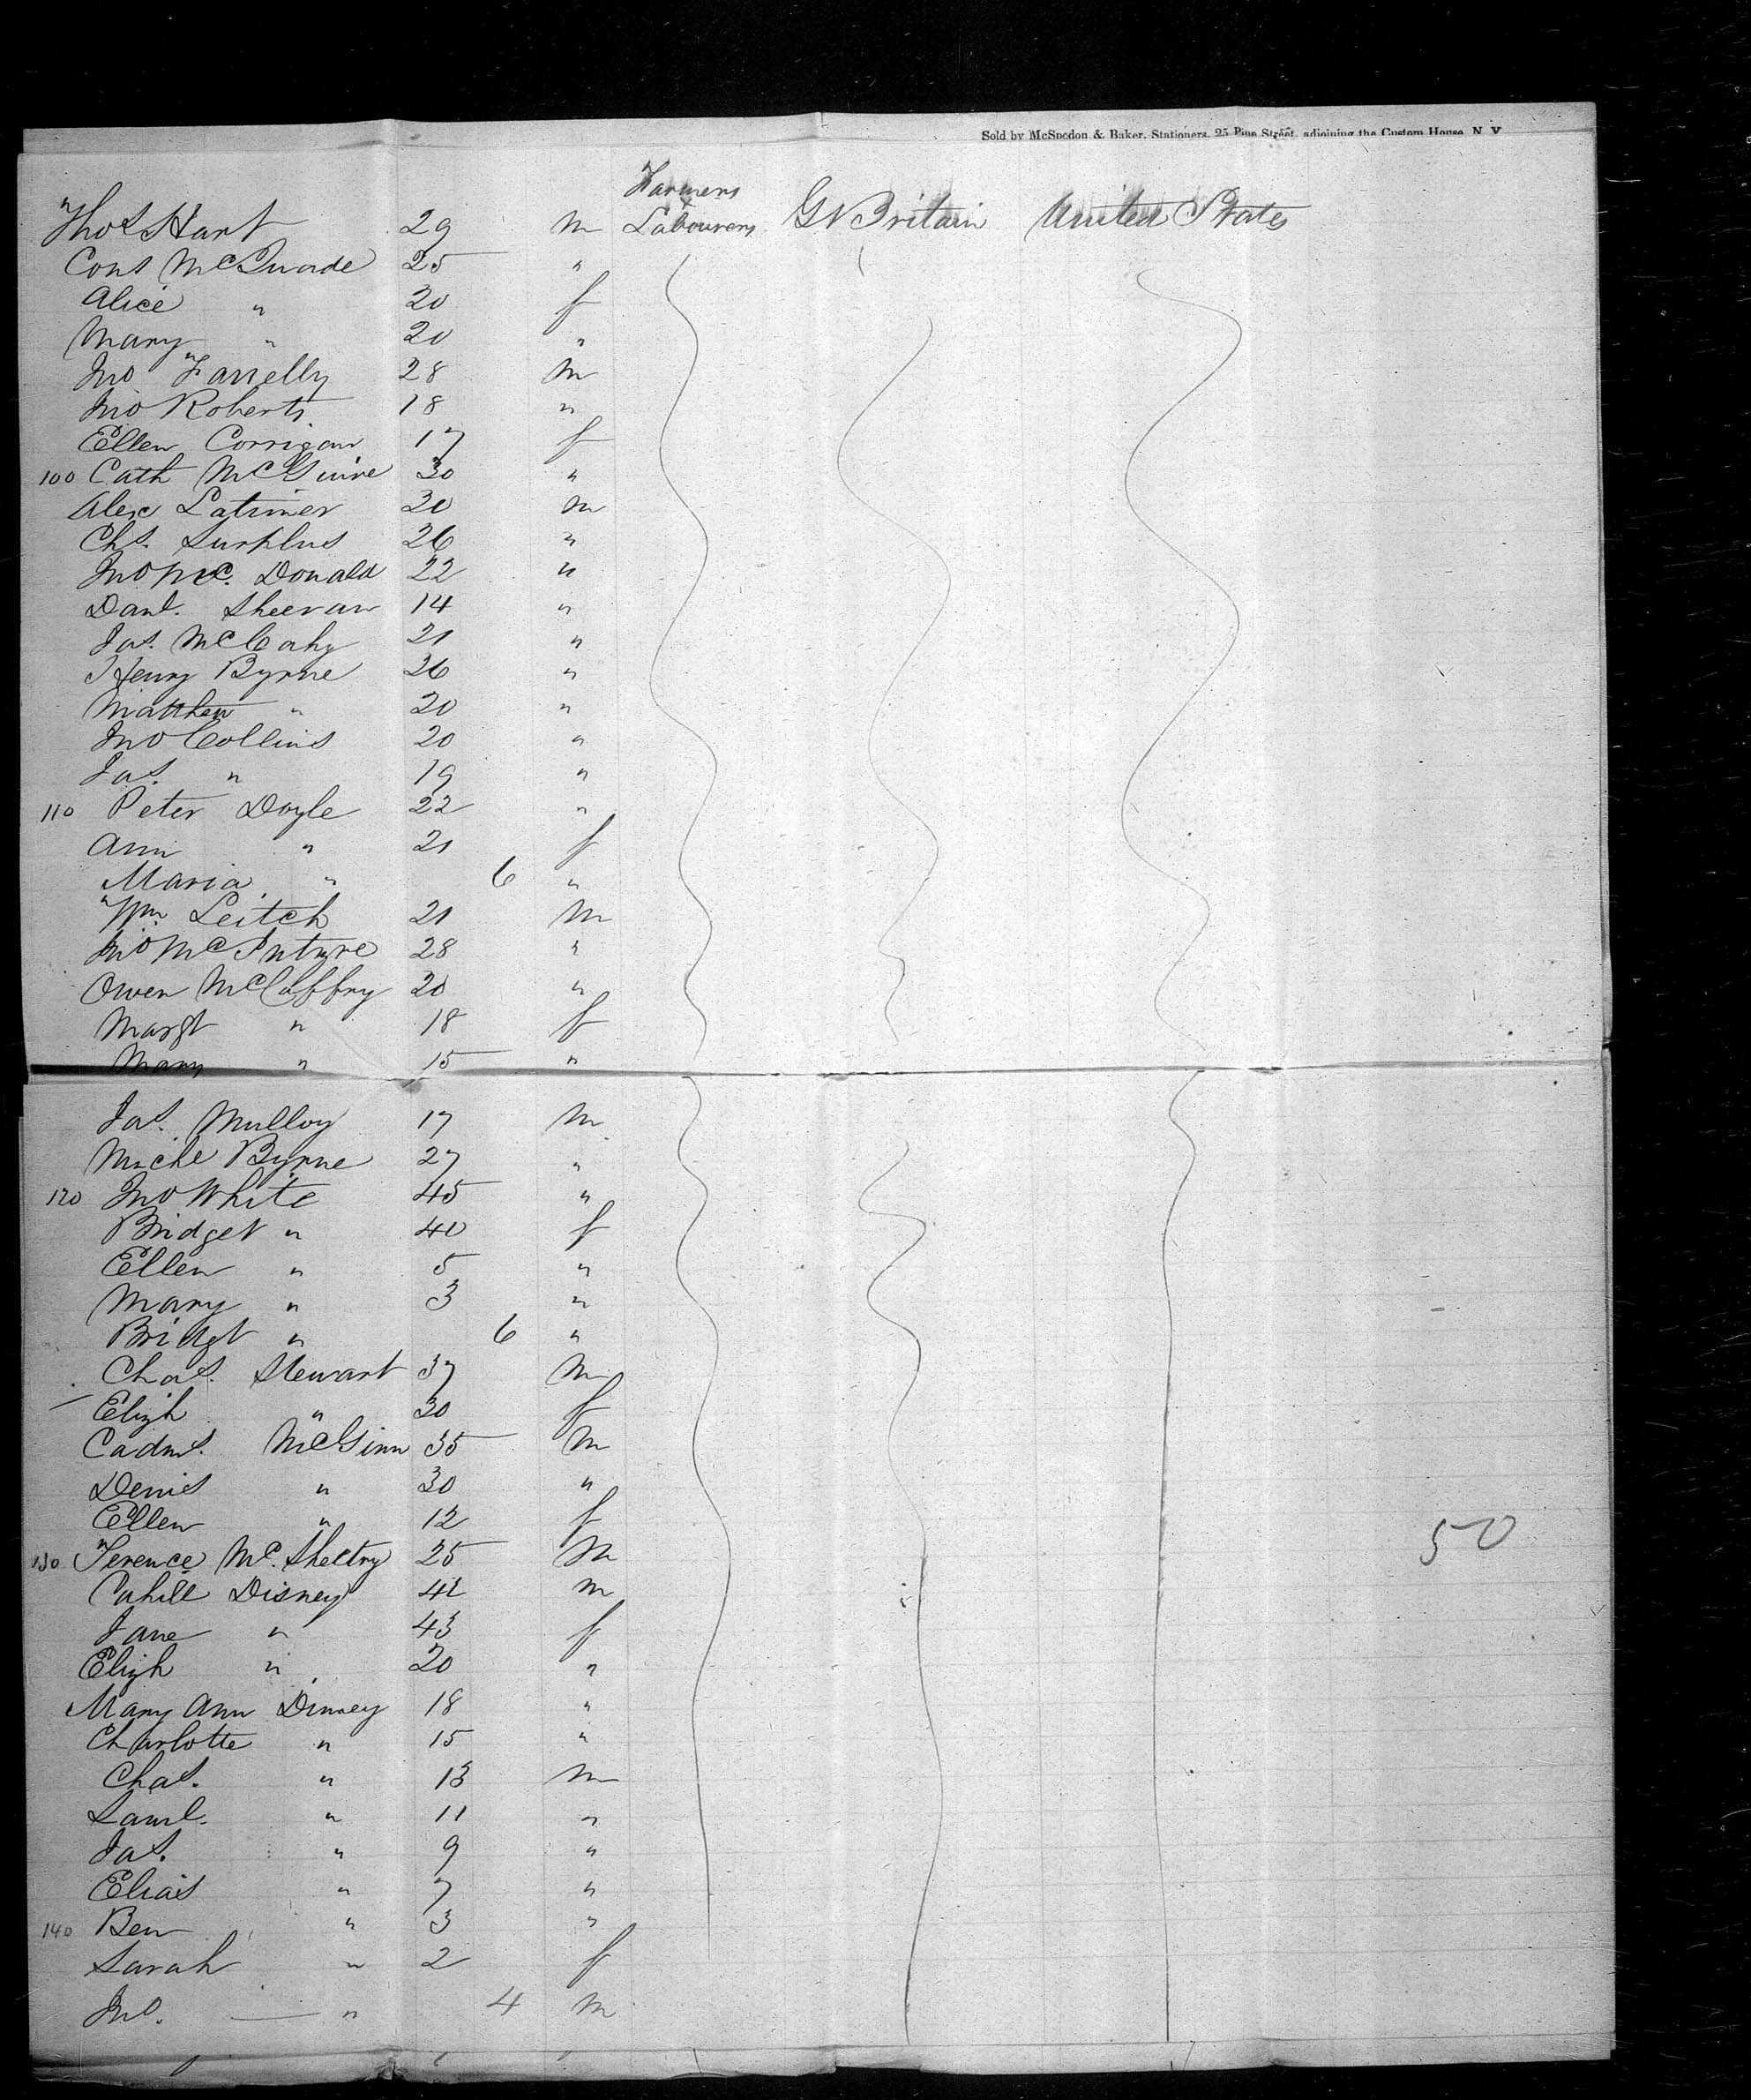 Sold by McSpedon & Baker, Stationers, 25 Pine Street, adjoining the Custom House, N. Y.
Farmers
Thos Hart 29 m & Labourers Gt Britain United States
Cons McQuade 25 "
Alice " 20 f
Mary " 20 "
Jno Farrelly 28 m
Jno Roberts 18 "
Ellen Corrigan 17 f
100 Cath McGuire 30 "
Alex Latimer 30 m
Chs. Surplus 26 "
Jno Mc. Donald 22 "
Danl. Sheevan 14 "
Jas. McCahy 21 "
Henry Byrne 26 "
Matthew " 20 "
Jno Collins 20 "
Jas. " 19 "
110 Peter Doyle 22 "
Ann " 21 f
Maria " 6 "
Wm Leitch 21 m
Jno McIntyre 28 "
Owen McCaffry 20 "
Margt " 18 f
Mary " 15 "
Jas. Mulloy 17 m
Michl Byrne 27 "
120 Jno White 45 "
Bridget " 40 f
Ellen " 5 "
Mary " 3 "
Bridgt " 6 "
Chas. Stewart 37 m
Elizh " 30 f
Cadms. McGinn 35 m
Denis " 30 "
Ellen " 12 f
130 Terence Mc. Sheetry 25 m 50
Cahill Disney 42 m
Jane " 43 f
Elizh " 20 "
Mary Ann Disney 18 "
Charlotte " 15 "
Chas. " 13 m
Saml. " 11 "
Jas. " 9 "
Elias " 7 "
140 Ben " 3 "
Sarah " 2 f
Jno. " 4 m